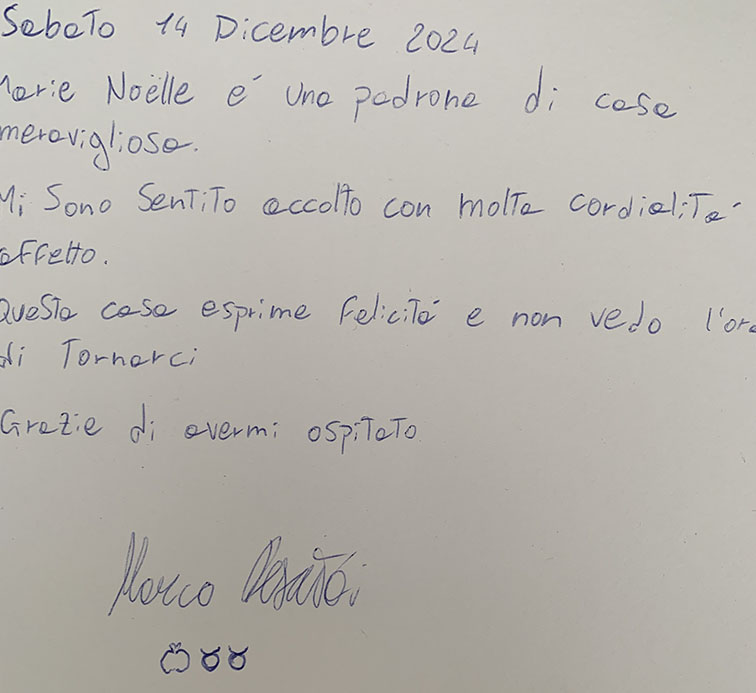 Sabato 14 Dicembre 2024
Marie Noëlle e' una padrona di casa
meravigliosa.
Mi sono sentito accolto con molta cordialità
affetto.
Questa casa esprime felicità e non vedo l'ora
di tornarci
Grazie di avermi ospitato
Marco